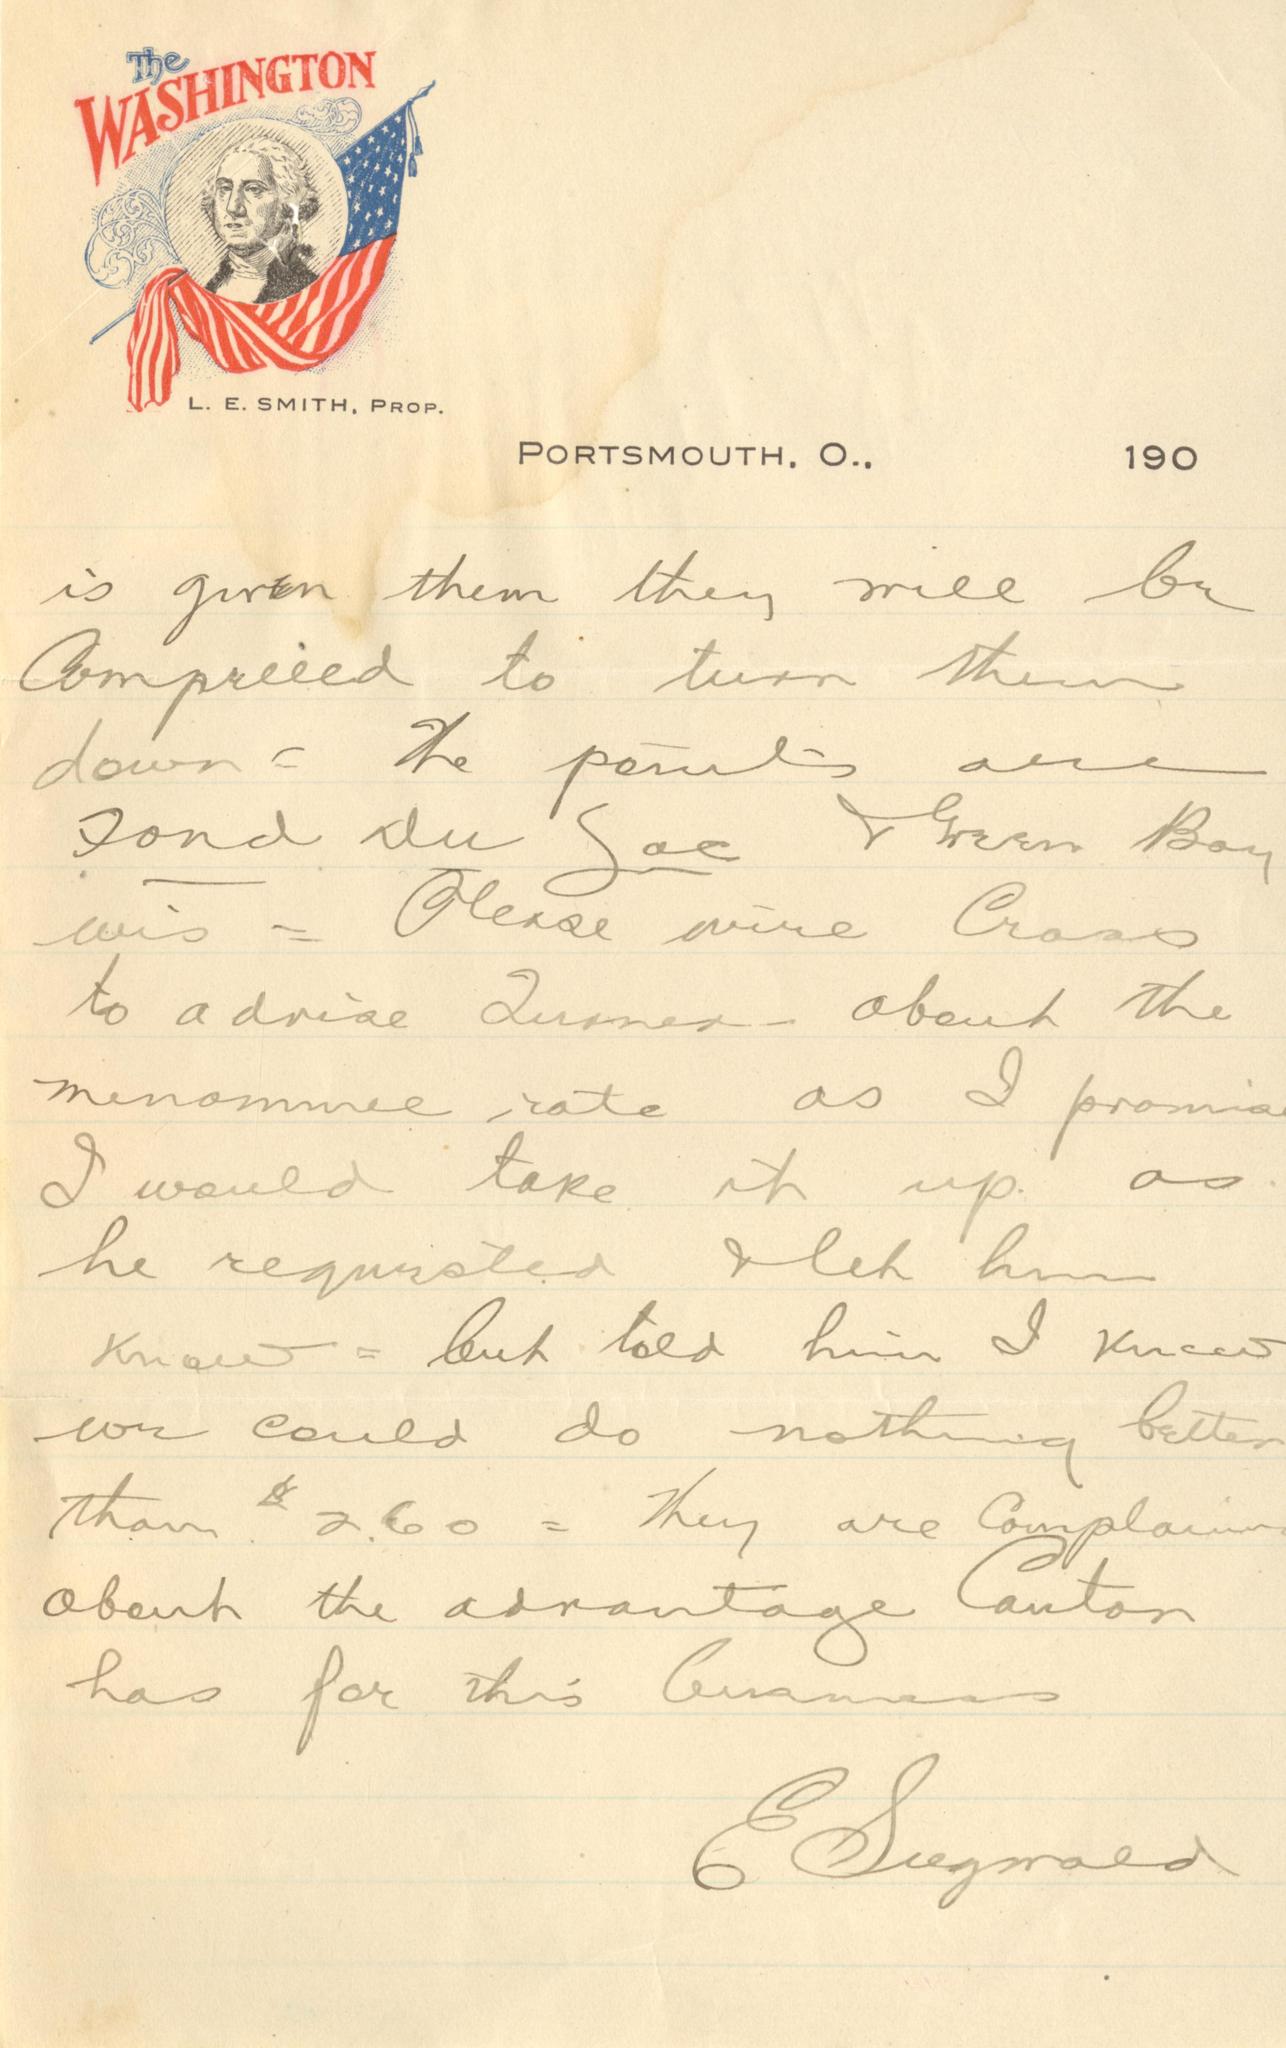 The
WASHINGTON
L. E. SMITH, PROP.
PORTSMOUTH, O., 190
is given them they will be
Compelled to turn them
down = The points are
Fond du Lac & Green Bay
wis = Please wire Cross
to advise Turner - about the
menominee rate as I promise
I would take it up as
he requested & let him
know = but told him I knew
we could do nothing better
than $2.60 = They are Complaining
about the advantage Canton
has for this business
E Siegwald